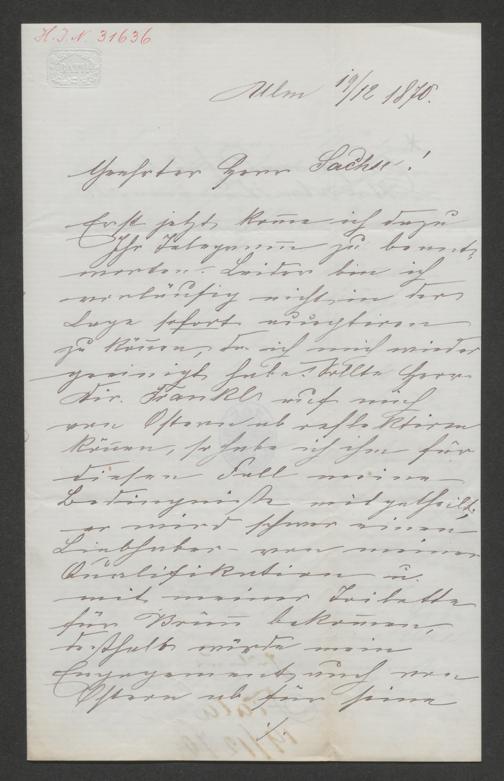 H. I. N. 31636
BATH
Ulm 19/12 1870.
Geehrter Herr Sachse!
Erst jetzt komme ich dazu
Ihr Telegramm zu beant-
worten. Leider bin ich
vorläufig nicht in der
Lage sofort
zu können, da ich mich wieder
geeinigt habe. Sollte Herr
Dir. Frankl auf mich
von Ostern ab reflektiren
können, so habe ich ihm für
diesen Fall meine
Bedingniße mitgetheilt;
er wird schwer einen
Liebhaber von meiner
Qualifikation u.
mit meiner Toilette
für Brünn bekommen,
deßhalb würde mein
Engagement auch von
Ostern ab für seine